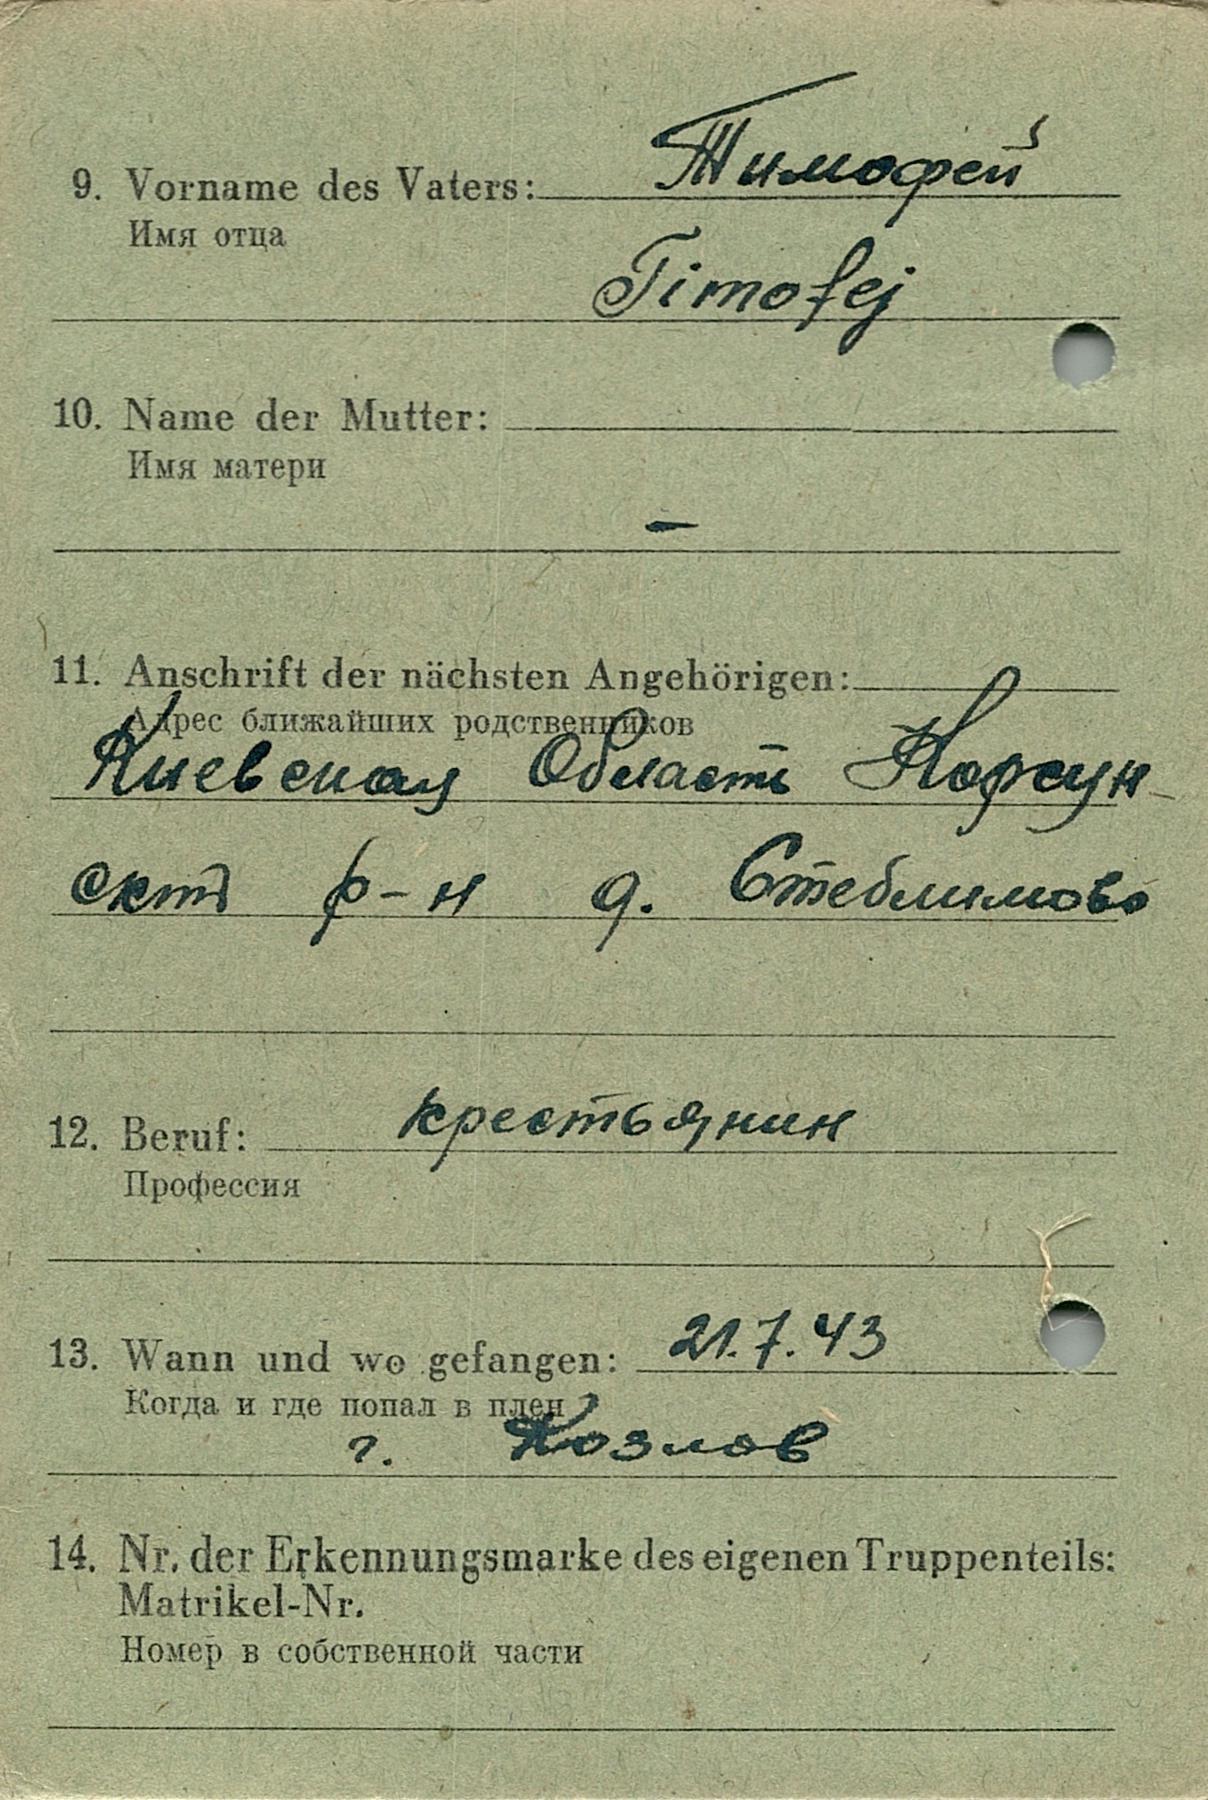 9. Vorname des Vaters: Тимофей
Имя отца
Timofej
10. Name der Mutter:
Имя матери
–
11. Anschrift der nächsten Angehörigen:
Адрес ближайших родственников
Киевская Область Корсун-
ский р-н д. Стеблимово
12. Beruf: крестьянин
Профессия
13. Wann und wo gefangen: 21.7.43
Когда и где попал в плен
г. Козлов
14. Nr. der Erkennungsmarke des eigenen Truppenteils:
Matrikel-Nr.
Номер в собственной части